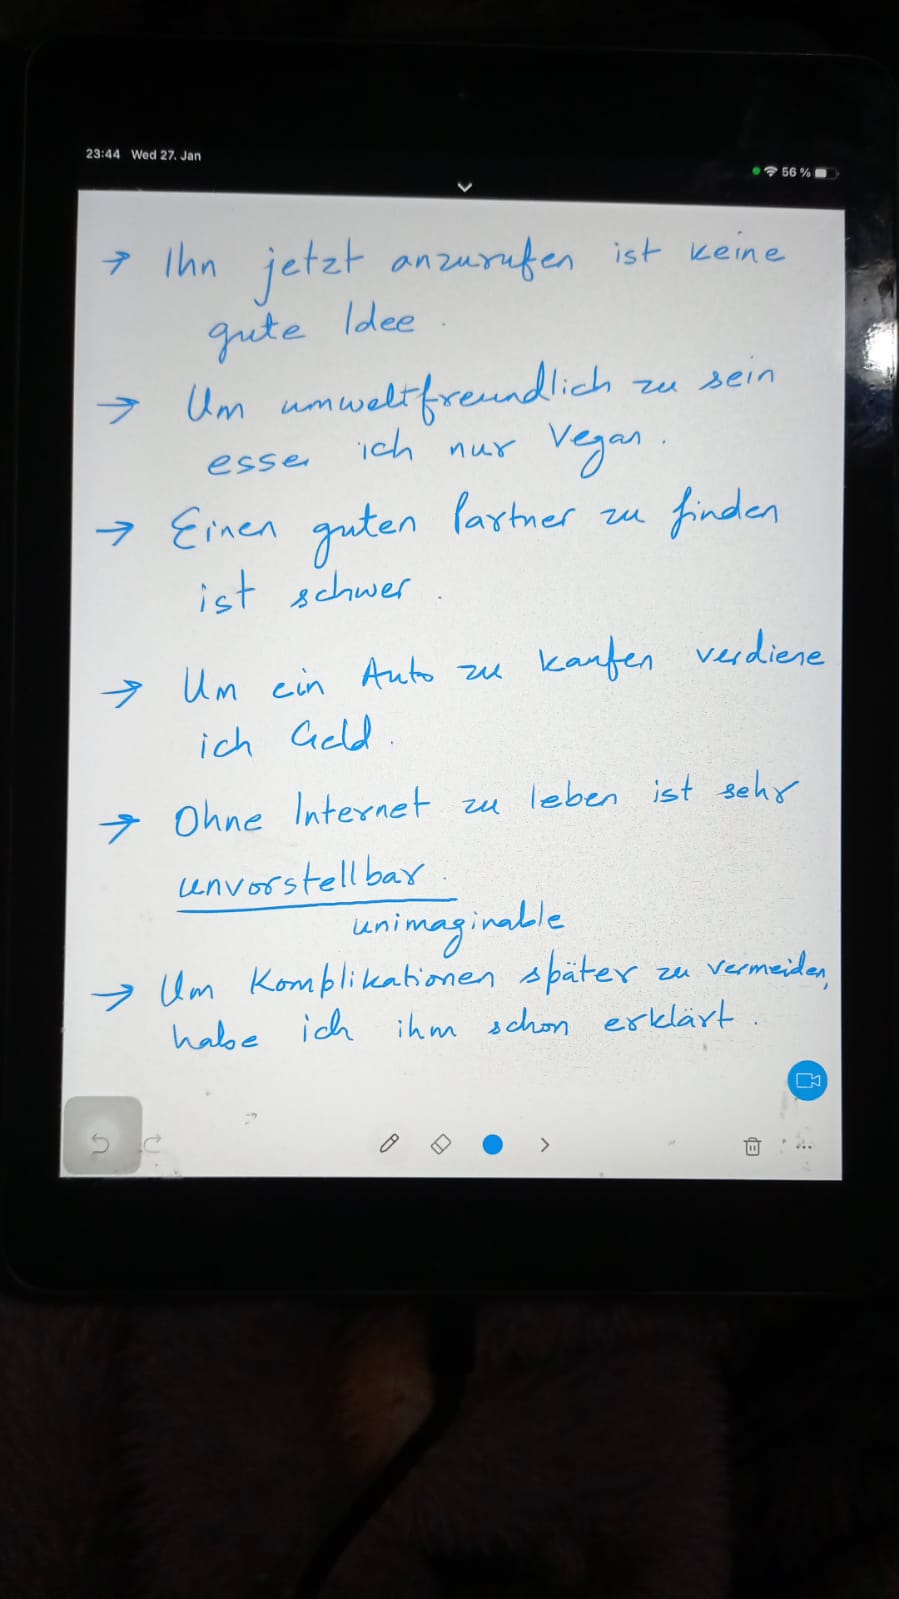 23:44 Wed 27. Jan
56 %
→ Ihn jetzt anzurufen ist keine
gute Idee.
→ Um umweltfreundlich zu sein
esse ich nur Vegan.
→ Einen guten Partner zu finden
ist schwer.
→ Um ein Auto zu kaufen verdiene
ich Geld.
→ Ohne Internet zu leben ist sehr
unvorstellbar.
unimaginable
→ Um Komplikationen später zu vermeiden,
habe ich ihm schon erklärt.